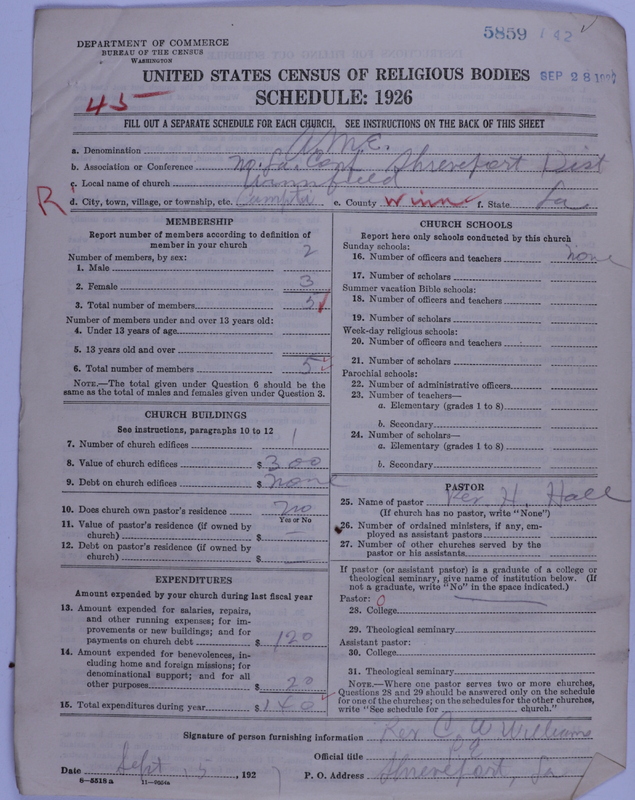 5859 142
DEPARTMENT OF COMMERCE
BUREAU OF THE CENSUS
WASHINGTON
UNITED STATES CENSUS OF RELIGIOUS BODIES
SEP 28 1927
45
SCHEDULE: 1926
FILL OUT A SEPARATE SCHEDULE FOR EACH CHURCH. SEE INSTRUCTIONS ON THE BACK OF THIS SHEET
a. Denomination A.M.E.
b. Association or Conference No. La. Conf Shreveport Dist
c. Local name of church
R d. City, town, village, or township, etc. Campta e. County Winn f. State La
MEMBERSHIP
Report number of members according to definition of
member in your church
Number of members, by sex:
1. Male 2
2. Female 3
3. Total number of members 5
Number of members under and over 13 years old:
4. Under 13 years of age
5. 13 years old and over
6. Total number of members 5
NOTE.—The total given under Question 6 should be the
same as the total of males and females given under Question 3.
CHURCH BUILDINGS
See instructions, paragraphs 10 to 12
7. Number of church edifices 1
8. Value of church edifices $300
9. Debt on church edifices $none
10. Does church own pastor's residence no
Yes or No
11. Value of pastor's residence (if owned by
church) $ —
12. Debt on pastor's residence (if owned by
church) $
EXPENDITURES
Amount expended by your church during last fiscal year
13. Amount expended for salaries, repairs,
and other running expenses; for im-
provements or new buildings; and for
payments on church debt $120
14. Amount expended for benevolences, in-
cluding home and foreign missions; for
denominational support; and for all
other purposes $20
15. Total expenditures during year $140
CHURCH SCHOOLS
Report here only schools conducted by this church
Sunday schools:
16. Number of officers and teachers none
17. Number of scholars
Summer vacation Bible schools:
18. Number of officers and teachers
19. Number of scholars
Week-day religious schools:
20. Number of officers and teachers
21. Number of scholars
Parochial schools:
22. Number of administrative officers
23. Number of teachers—
a. Elementary (grades 1 to 8)
b. Secondary
24. Number of scholars—
a. Elementary (grades 1 to 8)
b. Secondary
PASTOR
25. Name of pastor Rev. H. Hall
(If church has no pastor, write "None")
26. Number of ordained ministers, if any, em-
ployed as assistant pastors
27. Number of other churches served by the
pastor or his assistants
If pastor (or assistant pastor) is a graduate of a college or
theological seminary, give name of institution below. (If
not a graduate, write "No" in the space indicated.)
Pastor: 0
28. College
29. Theological seminary
Assistant pastor:
30. College
31. Theological seminary
NOTE.—Where one pastor serves two or more churches,
Questions 28 and 29 should be answered only on the schedule
for one of the churches; on the schedules for the other churches,
write "See schedule for church."
Signature of person furnishing information Rev C. W Williams
Official title
Date Sept. 5, 192 P. O. Address Shreveport, La
8—5518a 11—9504a